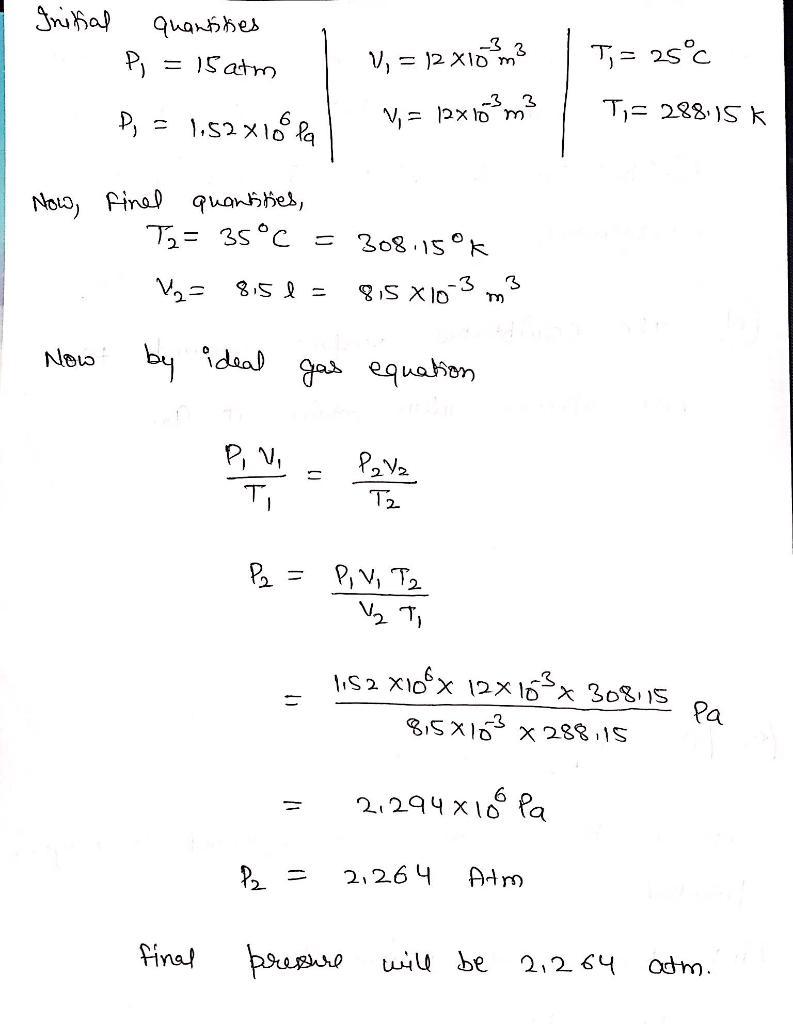 Initial quantities
P₁ = 15 atm | V₁ = 12 x 10⁻³ m³ | T₁ = 25°C
P₁ = 1.52 x 10⁶ Pa | V₁ = 12 x 10⁻³ m³ | T₁ = 288.15 K
Now, final quantities,
T₂ = 35°C = 308.15°K
V₂ = 8.5 l = 8.5 x 10⁻³ m³
Now by ideal gas equation
P₁ V₁ / T₁ = P₂ V₂ / T₂
P₂ = P₁ V₁ T₂ / V₂ T₁
= 1.52 x 10⁶ x 12 x 10⁻³ x 308.15 / 8.5 x 10⁻³ x 288.15 Pa
= 2.294 x 10⁶ Pa
P₂ = 2.264 Atm
final pressure will be 2.264 atm.